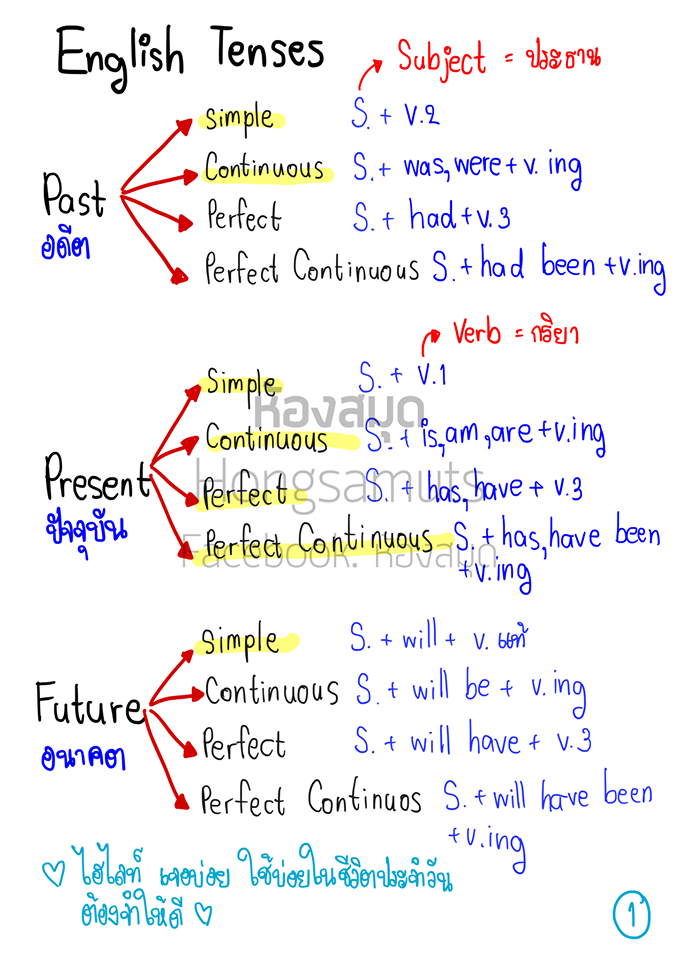 English Tenses
Subject = ประธาน
Past
อดีต
Simple S. + V.2
Continuous S. + was, were + v. ing
Perfect S. + had + v.3
Perfect Continuous S. + had been + v.ing
Verb = กริยา
Present
ปัจจุบัน
Simple S. + V.1
Continuous S. + is, am, are + v.ing
Perfect S. + has, have + v.3
Perfect Continuous S. + has, have been
+ v.ing
ห้องสมุด
Hongsamuts
Facebook: ห้องสมุด
Future
อนาคต
Simple S. + will + v. แท้
Continuous S. + will be + v.ing
Perfect S. + will have + v.3
Perfect Continuos S. + will have been
+ v.ing
♡ ไฮไลท์ เจอบ่อย ใช้บ่อยในชีวิตประจำวัน
ต้องจำให้ดี ♡
1